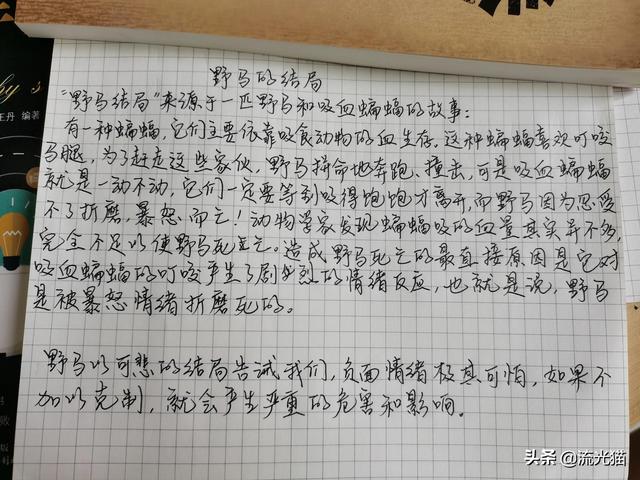 野马的结局
“野马结局”来源于一匹野马和吸血蝙蝠的故事：
有一种蝙蝠，它们主要依靠吸食动物的血生存，这种蝙蝠喜欢叮咬
马腿，为了赶走这些家伙，野马拼命地奔跑、撞击，可是吸血蝙蝠
就是一动不动，它们一定要等到吸得饱饱才离开，而野马因为忍受
不了折磨，暴怒而亡！动物学家发现蝙蝠吸的血量其实并不多，
完全不足以使野马死亡。造成野马死亡的最直接原因是它对
吸血蝙蝠的叮咬产生了剧烈的情绪反应，也就是说，野马
是被暴怒情绪折磨死的。
野马以可悲的结局告诫我们，负面情绪极其可怕，如果不
加以克制，就会产生严重的危害和影响。
王丹 编著
头条 @流光猫